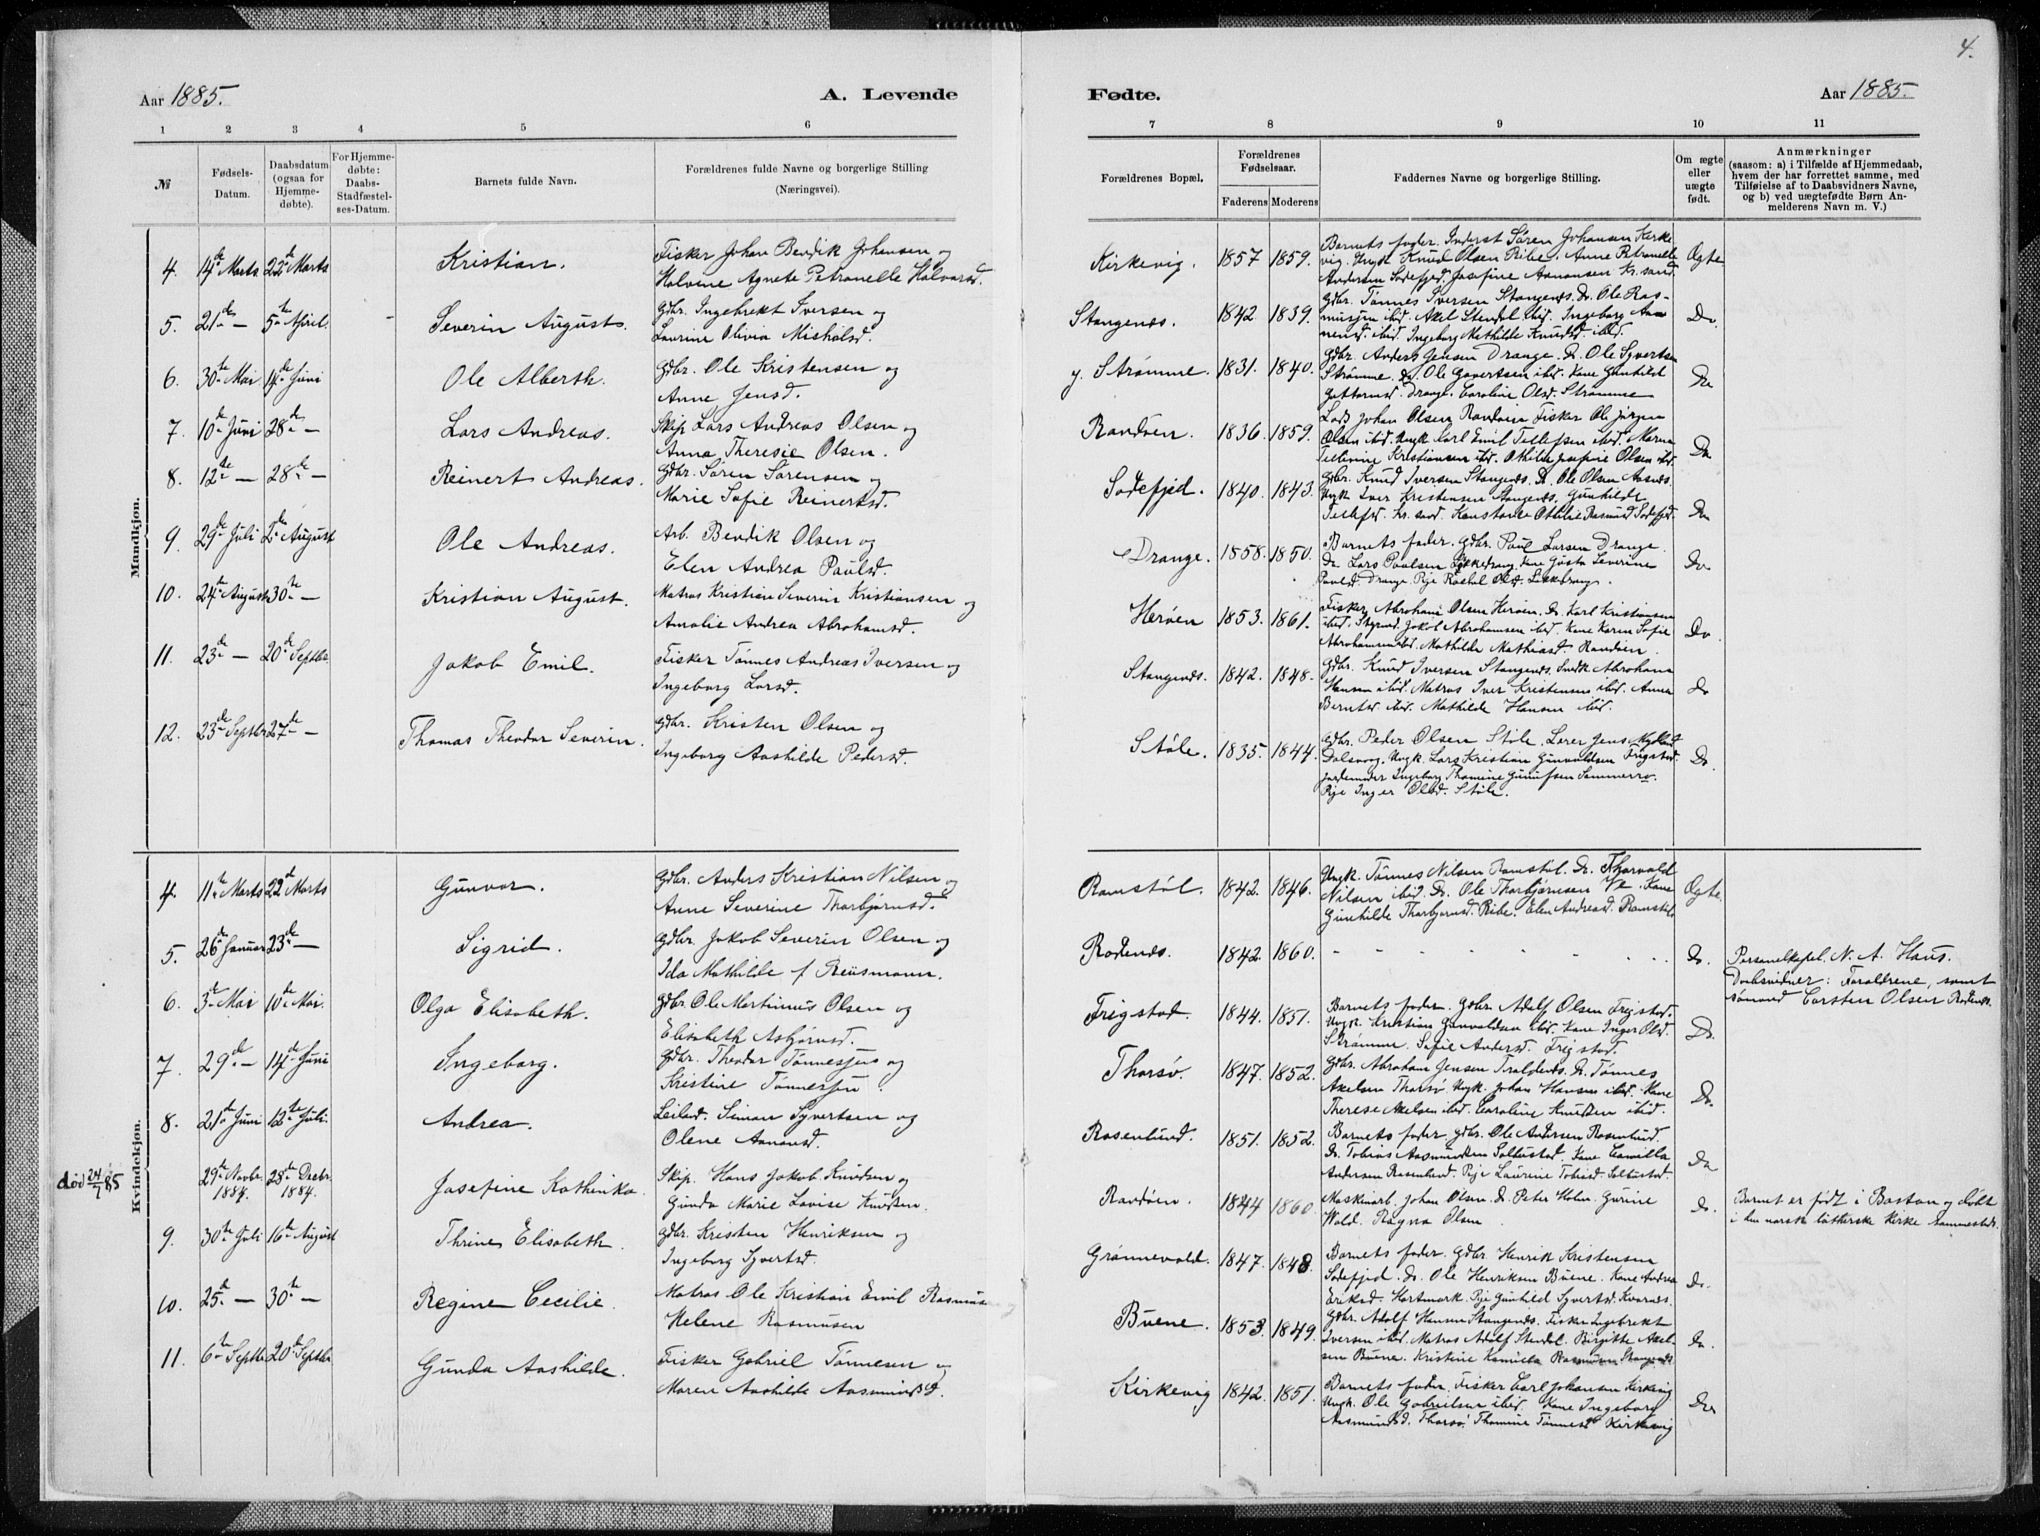 4.
Aar 1885. A. Levende
Fødte. Aar 1885.
1 2 3 4 5 6
7 8 9 10 11
№
Fødsels-
Datum.
Daabsdatum
(ogsaa for
Hjemme-
døbte).
For Hjemme-
døbte:
Daabs-
Stadfæstel-
ses-Datum.
Barnets fulde Navn.
Forældrenes fulde Navne og borgerlige Stilling
(Næringsvei).
Forældrenes Bopæl.
Forældrenes
Fødselsaar.
Faderens Moderens
Faddernes Navne og borgerlige Stilling.
Om ægte
eller
uægte
født.
Anmærkninger
(saasom: a) i Tilfælde af Hjemmedaab,
hvem der har forrettet samme, med
Tilføielse af to Daabsvidners Navne,
og b) ved uægtefødte Børn An-
melderens Navn m. V.)
Mandkjøn.
4. 14de Marts 22de Marts Kristian.
Fisker Johan Bendik Johansen og
Halvine Agnete Petronelle Halvorsd.
Kirkevig. 1857 1859.
Barnets fader. Inderst Søren Johansen Kirke
vig. Ungk Knud Olsen Ribe. Anne Petronelle
Andersen Sodefjed. Josefine Aanonsen Kr. sand
Ægte
5. 21de — 5te April. Severin August.
Gdbr. Ingebrekt Iversen og
Laurine Olivia Mickalsd.
Stangenæs. 1842 1839.
Gdbr. Tønnes Iversen Stangenæs. Do. Ole Ras-
mussen ibid. Axel Stendal ibid. Ingeborg Aan
nensd. ibid. Ingeborg Mathilde Knudsd ibid.
Do.
6. 30te Mai 14de Juni Ole Alberth.
Gdbr. Ole Kristensen og
Anne Jensd.
y. Strømme. 1831. 1840.
Gdbr. Anders Jensen Drange. Do. Ole Syvertsen
Strømme. Do. Ole Govertsen ibid. Kone Gunhild
Guttormsd. Drange. Caroline Olsd. Strømme
Do
7. 10de Juni 28de — Lars Andreas.
Skip Lars Andreas Olsen og
Anna Theresie Olsen.
Randøen. 1836. 1859.
Lods Johan Olsen Randøen Fisker Ole Jørgen
Olsen ibid. Ungk. Karl Emil Tellefsen ibid. Maren
Tellevine Kristiansen ibid. Othilde Josefine Olsen ibid.
Do
8. 12te — 28de — Reinert Andreas.
Gdbr. Søren Sørensen og
Marie Sofie Reinertsd.
Sodefjed. 1840. 1843.
Gdbr. Knud Iversen Stangenæs. Do. Ole Olsen Aasnæs.
Ungk Iver Kristensen Stangenæs. Gunhilde
Tellefsd. Kr. sand Konstance Othilie Rasmusd Sodefjed.
Do
9. 29de Juli 2de August Ole Andreas.
Arb. Bendik Olsen og
Elen Andrea Paulsd.
Drange. 1858. 1850.
Barnets fader. Gdbr. Paul Larsen Drange.
Do. Lars Paulsen Likkedrang. Kone Gusta Severine
Paulsd. Drange. Pige Rachel Olsd. Likkedrang.
Do
10. 24de August 30te — Kristian August.
Matros Kristian Severin Kristiansen og
Amalie Andrea Abrahamsd.
Herøen 1853. 1861.
Fisker Abraham Olsen Herøen. Do. Karl Kristiansen
ibid. Styrmd. Jakob Abrahamsen ibid. Kone Karen Sofie
Abrahamsen ibid. Mathilde Mathiasd. Randøen.
Do
11. 23de — 20de Septbr. Jakob Emil.
Fisker Tønnes Andreas Iversen og
Ingeborg Larsd.
Stangenæs. 1842. 1848.
Gdbr. Knud Iversen Stangenæs. Snedk Abraham
Hansen ibid. Matros Iver Kristensen ibid. Anna
Berntsd ibid. Mathilde Hansen ibid.
Do
12. 23de Septbr 27de — Thomas Theodor Severin.
Gdbr. Kristen Olsen og
Ingeborg Aashilde Pedersd.
Støle. 1835. 1844.
Gdbr. Peder Olsen Støle. Lærer Jens Nyland
Dalsvog. Ungk. Lars Kristian Gunvaldsen Frigstad.
Jordemoder Ingeborg Thomine Gunufsen Sommerro.
Pige Inger Olsd. Støle.
Do.
Kvindekjøn.
4. 11te Marts 22de Marts Gunvor.
Gdbr. Anders Kristian Nilsen og
Anne Severine Thorbjørnsd.
Ramstøl. 1842. 1846.
Ungk. Tønnes Nilsen Ramstøl. Do. Thorvald
Nilsen ibid. Do. Ole Thorbjørnsen Kone
Gunhilde Thorbjørnsd. Ribe. Elen Andreasd. Ramstøl.
Ægte.
5. 26de Januar 23de — Sigrid.
Gdbr. Jakob Severin Olsen og
Ida Mathilde f Reusmann.
Rodenæs. 1842. 1860.
Do.
Personelkapel. N. A. Haus.
Daabsvidner: Forældrene, samt
sømand Carsten Olsen Rodenæs.
6. 3de Mai 10de Mai. Olga Elisabeth.
Gdbr. Ole Martinius Olsen og
Elisabeth Asbjørnsd.
Frigstad. 1844. 1851.
Barnets fader. Gdbr. Adolf Olsen Frigstad.
Ungk. Kristian Gunvaldsen ibid. Kone Inger Olsd.
Strømme. Sofie Andersd. Frigstad.
Do.
7. 29de — 14de Juni Ingeborg.
Gdbr. Theodor Tønnessen og
Kristine Tønnessen.
Thorsø. 1847. 1852.
Gdbr. Abraham Jensen Traldenæs. Do. Tønnes
Axelsen Thorsø Ungk. Johan Hansen ibid. Kone
Therese Axelsen ibid. Caroline Knudsen ibid.
Do.
8. 21de Juni 12te Juli. Andrea.
Leilænd. Simon Syvertsen og
Olene Aanonsd.
Rosenlund. 1851. 1852.
Barnets fader Gdbr. Ole Andersen Rosenlund.
Do. Tobias Aasmundsen Saltustad. Kone Camilla
Andersen Rosenlund. Pige Laurine Tobiasd. Saltustad.
Do
død 24/7 85
29de Novbr. 1884. 28de Decbr. 1884. Josefine Kathinka.
Skip. Hans Jakob Knudsen og
Gunda Marie Lovise Knudsen.
Randøen. 1844 1860.
Maskinarb. Johan Olsen. Do. Peter Holm. Gurine
Wold. Ragna Olsen
Do.
Barnet er født i Boston og døbt
i den norsk lutherske kirke sammesteds.
9. 30te Juli 16de August Thrine Elisabeth.
Gdbr. Kristen Henriksen og
Ingeborg Syvertsd.
Grønnevold. 1847. 1848.
Barnets fader. Gdbr. Henrik Kristensen
Sodefjed. Do. Ole Henriksen Buene. Kone Andrea
Eriksd. Hartmark. Pige Gunhild Syvertsd. Kvarnæs.
Do.
10. 25de — 30te — Regine Cecilie.
Matros Ole Kristian Emil Rasmussen
Helene Rasmusen
Buene. 1853. 1849.
Gdbr. Adolf Hansen Stangenæs. Fisker Ingebrekt
Iversen ibid. Matros Adolf Stendal. Birgitte Axel-
sen Buene. Kristine Kamilla Rasmusen Stangenæs
Do.
11. 6te Septbr 20de Septbr. Gunda Aashilde.
Fisker Gabriel Tønnesen og
Maren Aashilde Aasmundsd.
Kirkevig 1842. 1851.
Barnets fader. Fisker Carl Johansen Kirkevig
Ungk. Ole Gabrielsen ibid. Kone Ingeborg
Aasmundsd. Thorsø. Thomine Tønnesd Kirkevig
Do